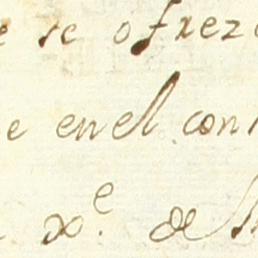 e se ofrez
e en el con
xᵉ. de